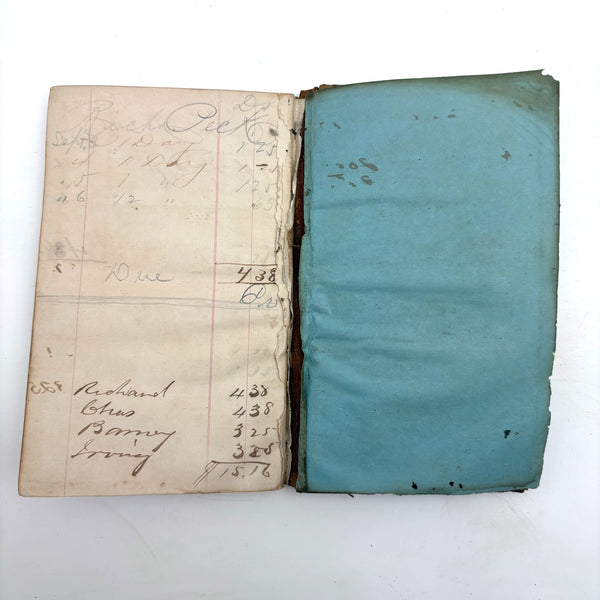 Dr
Peck
Sept. 3 1 Day 1 25
" 4 1 Day 1 25
" 5 1 " 1 25
" 6 1/2 " " 63
Due 4 38
Richard 4 38
Chas 4 38
Barney 3 25
Irving 3 25
$15.16